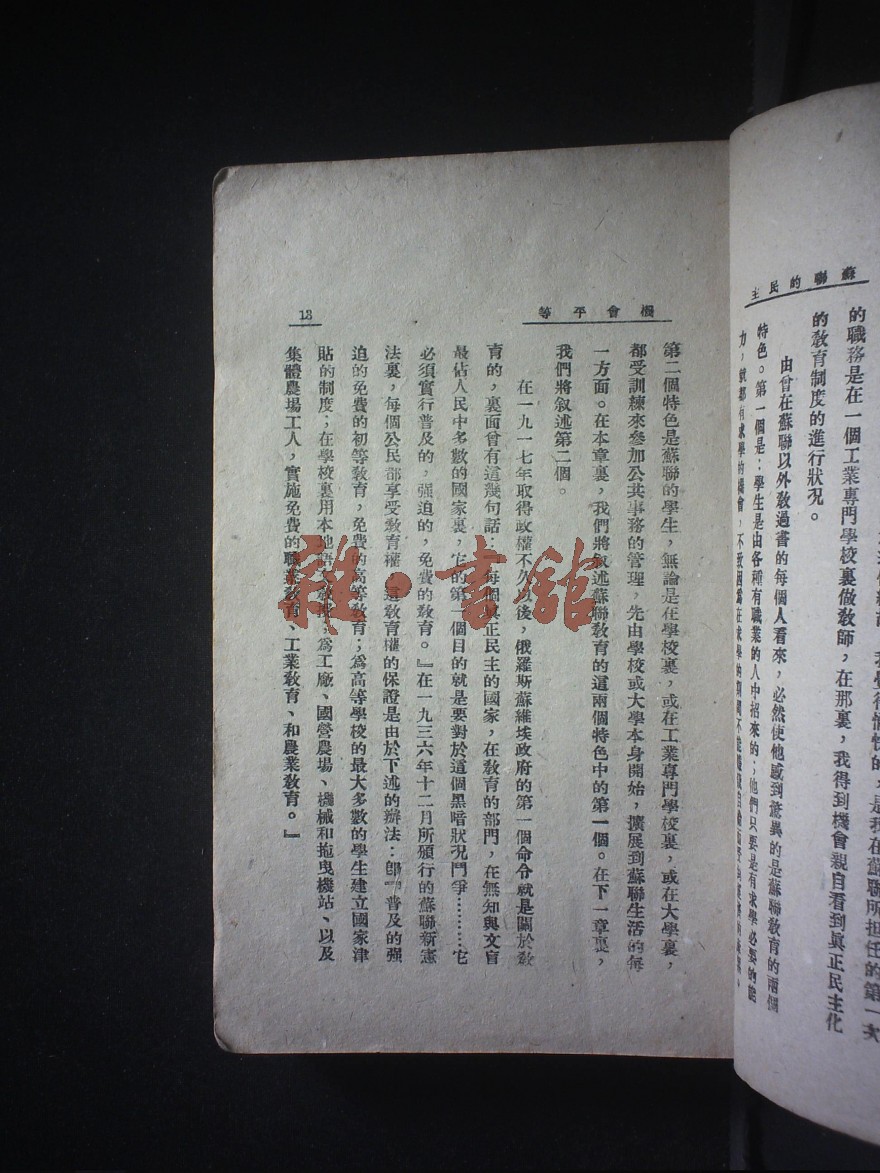 蘇聯的民主
的職務是在一個工業專門學校裏做教師，在那裏，我得到機會親自看到眞正民主化
的教育制度的進行狀况。
由曾在蘇聯以外教過書的每個人看來，必然使他感到驚異的是蘇聯教育的兩個
特色。第一個是：學生是由各種有職業的人中招來的；他們只要是有求學必要的能
力，就都有求學的機會，
機會平等
13
第二個特色是蘇聯的學生，無論是在學校裏，或在工業專門學校裏，或在大學裏，
都受訓練來參加公共事務的管理，先由學校或大學本身開始，擴展到蘇聯生活的每
一方面。在本章裏，我們將叙述蘇聯教育的這兩個特色中的第一個。在下一章裏，
我們將叙述第二個。
在一九一七年取得政權不久以後，俄羅斯蘇維埃政府的第一個命令就是關於教
育的，裏面曾有這幾句話：『每個眞正民主的國家，在教育的部門，在無知與文盲
最佔人民中多數的國家裏，它的第一個目的就是要對於這個黑暗狀况鬥爭………它
必須實行普及的，强迫的，免費的教育。』在一九三六年十二月所頒行的蘇聯新憲
法裏，每個公民都享受教育權 這教育權的保證是由於下述的辦法：卽『普及的强
迫的免費的初等教育，免費的高等教育；爲高等學校的最大多數的學生建立國家津
貼的制度；在學校裏用本地語文教授，爲工廠、國營農場、機械和拖曳機站、以及
集體農場工人，實施免費的職業教育、工業教育、和農業教育。』
雜·書館